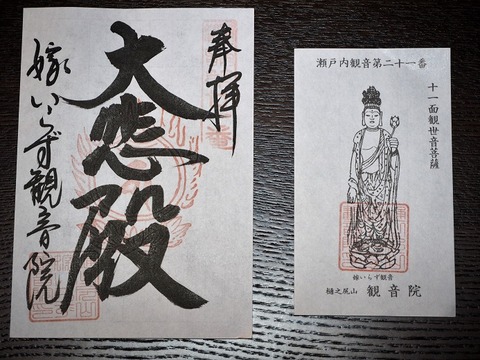 奉拝
大悲殿
嫁いらず観音院
瀬戸内観音第二十一番
十一面観世音菩薩
嫁いらず観音
樋之尻山 観音院